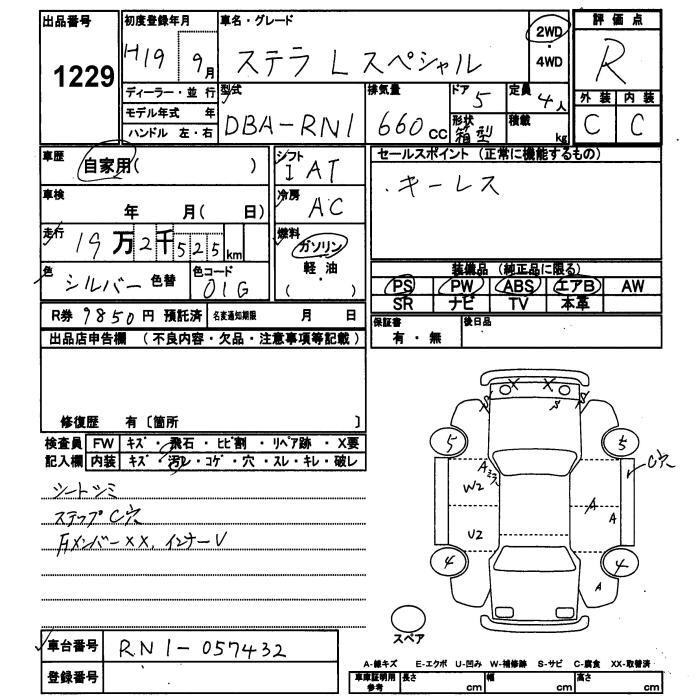 出品番号 1229
初度登録年月 H19 9月
ディーラー・並行
モデル年式 年
ハンドル 左・右
車名・グレード
ステラ L スペシャル
2WD
・
4WD
評価点
R
外装 内装
C C
型式 DBA-RN1
排気量 660cc
ドア 5
定員 4人
形状 箱型
積載 kg
車歴 自家用( )
車検 年 月( 日)
走行 19万2千525km
色 シルバー 色替
色コード 01G
シフト IAT
冷房 AC
燃料 ガソリン
軽・油
( )
セールスポイント(正常に機能するもの)
・キーレス
装備品(純正品に限る)
PS PW ABS エアB AW
SR ナビ TV 本革
保証書 有・無
後日品
R券 9850円 預託済
名変通知期限 月 日
出品店申告欄(不良内容・欠品・注意事項等記載)
修復歴 有〔箇所 〕
検査員記入欄
FW キズ・飛石・ヒビ割・リペア跡・X要
内装 キズ・汚レ・コゲ・穴・スレ・キレ・破レ
シートシミ
ステップC穴
メンバーXX、インナーV
車台番号 RN1-057432
登録番号
X X
S S
5 5
A
W2
U2
A
A
C穴
4 4
A
スペア
A-線キズ E-エクボ U-凹み W-補修跡 S-サビ C-腐食 XX-取替済
車庫証明用参考 長さ cm 幅 cm 高さ cm